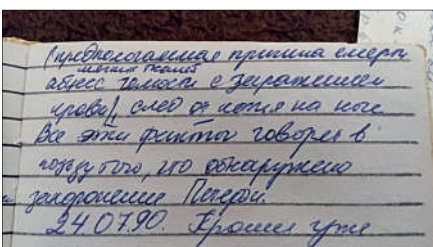 (предпологаемая причина смерти
мягких тканей
абцес голости с заражением
крови), след от ножа на ноге
Все эти факты говорят в
пользу того, что обнаружено
захоронение
24.07.90. Прошел уже